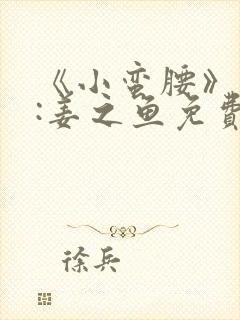 《小蛮腰》
:姜之鱼免費
徐兵